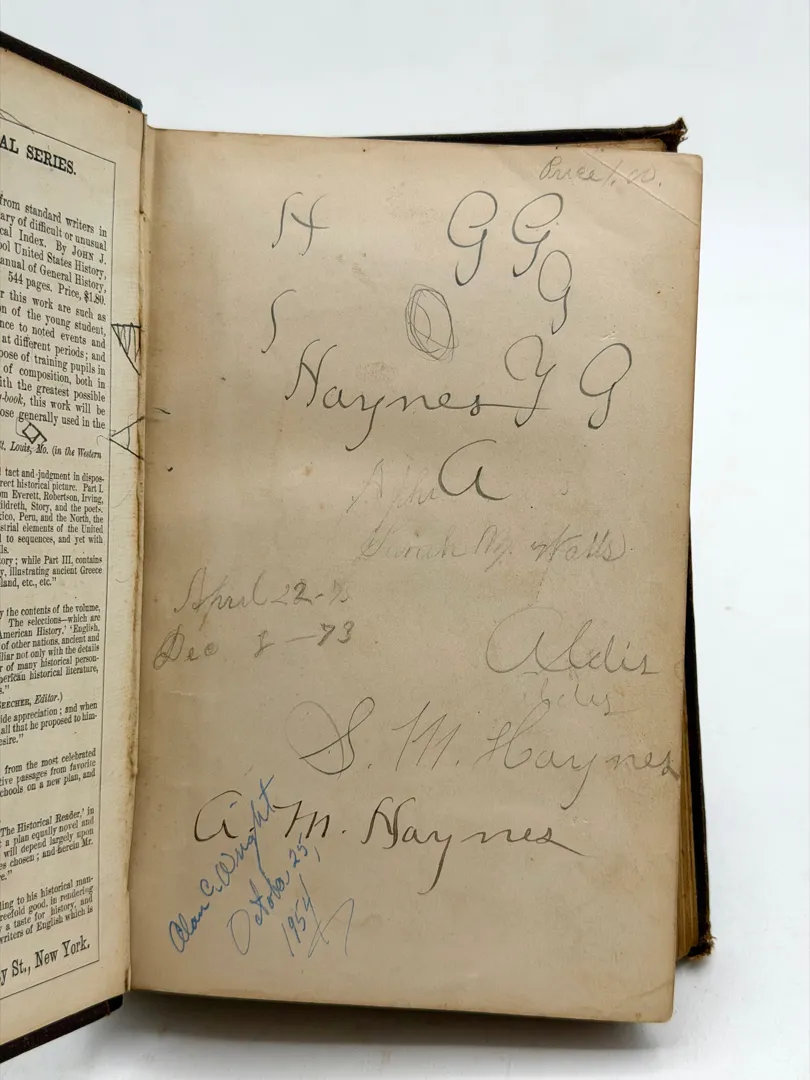 AL SERIES.
from standard writers in
ary of difficult or unusual
cal Index. By JOHN J.
ool United States History,
anual of General History,
544 pages. Price, $1.80.
r this work are such as
n of the young student,
nce to noted events and
at different periods; and
pose of training pupils in
of composition, both in
ith the greatest possible
-book, this work will be
ose generally used in the
t. Louis, Mo. (in the Western
tact and judgment in dispos-
rect historical picture. Part I.
om Everett, Robertson, Irving,
ildreth, Story, and the poets.
ico, Peru, and the North, the
strial elements of the United
to sequences, and yet with
ls.
ory; while Part III, contains
y, illustrating ancient Greece
land, etc., etc."
y the contents of the volume,
The selections—which are
American History,' 'English,
of other nations, ancient and
liar not only with the details
r of many historical person-
merican historical literature,
s."
BEECHER, Editor.)
ide appreciation; and when
all that he proposed to him-
esire."
from the most celebrated
tive passages from favorite
chools on a new plan, and
The Historical Reader,' in
a plan equally novel and
will depend largely upon
es chosen; and herein Mr.
e."
ling to his historical man-
reefold good, in rendering
y a taste for history, and
writers of English which is
y St., New York.
Price 1.00.
H G G
G
Haynes Y G
A
Sarah M. Watts
April 22-7
Dec 8—73
Aldis
S. M. Haynes
A M. Haynes
Alan C. Wright
October 25,
1954